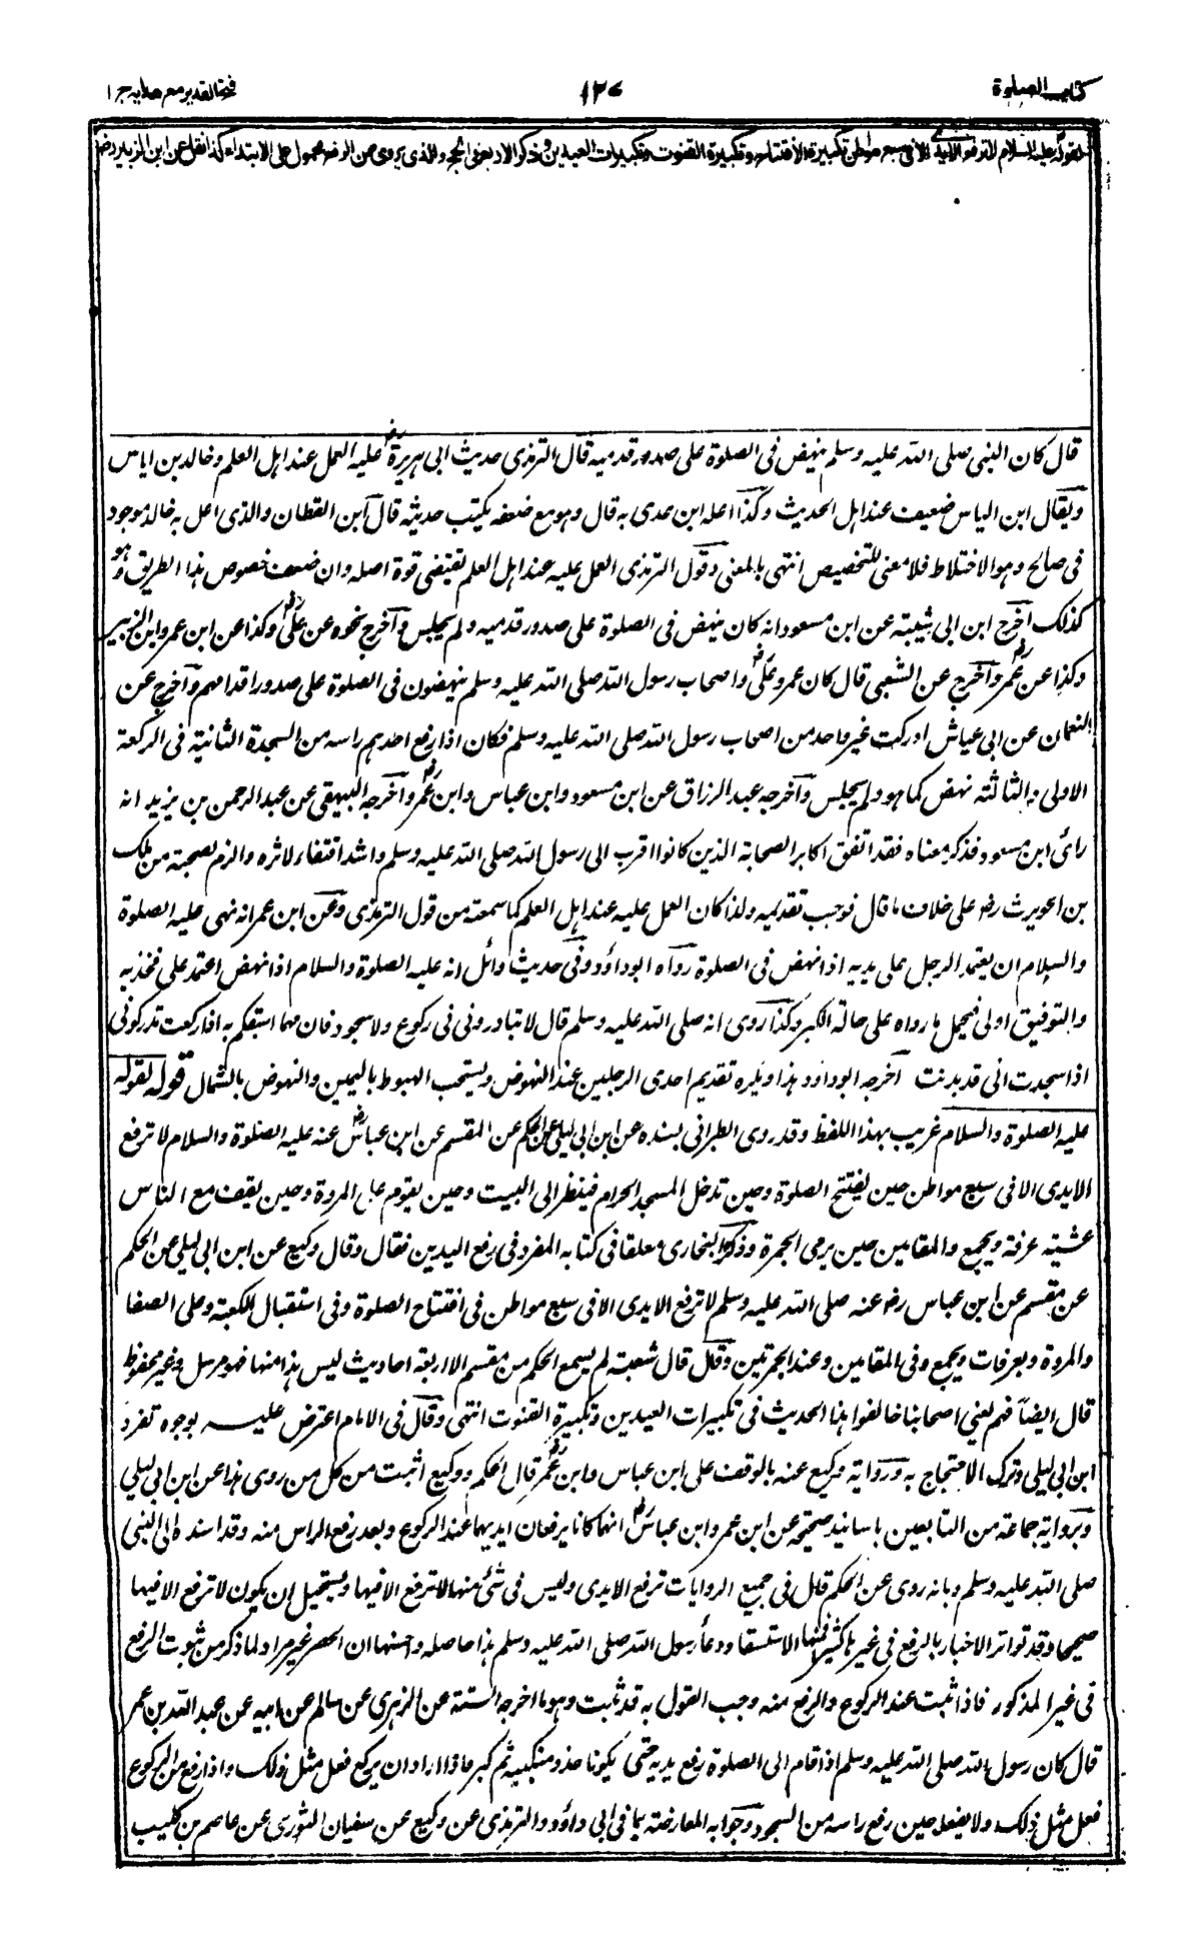 كتاب الصلوة
١٢٧
فتح القدير مع هدايه ج ١
لقوله عليه السلام لا ترفع الايدى الا فى سبع مواطن تكبيرة الافتتاح وتكبيرة القنوت وتكبيرات العيدين وذكر الاربع فى الحج والذى يروى من الرفع محمول على الابتداء كذا نقل عن ابن الزبير رضـ
قال كان النبى صلى الله عليه وسلم ينهض فى الصلوة على صدور قدميه قال الترمذى حديث ابى هريرةؓ عليه العمل عند اهل العلم وخالد بن اياس
ويقال ابن الياس ضعيف عند اهل الحديث وكذا اعله ابن عدى به قال وهو مع ضعفه يكتب حديثه قال ابن القطان والذى اعل به خالد موجود
فى صالح وهو الاختلاط فلا معنى للتخصيص انتهى بالمعنى وقول الترمذى العمل عليه عند اهل العلم يقتضى قوة اصله وان ضعف خصوص هذا الطريق وهو
كذلك اخرج ابن ابى شيبة عن ابن مسعود انه كان ينهض فى الصلوة على صدور قدميه ولم يجلس واخرج نحوه عن علىؓ وكذا عن ابن عمر وابن الزبير
وكذا عن عمرؓ واخرج عن الشعبى قال كان عمر وعلىؓ واصحاب رسول الله صلى الله عليه وسلم ينهضون فى الصلوة على صدور اقدامهم واخرج عن
النعمان عن ابى عياش ادركت غير واحد من اصحاب رسول الله صلى الله عليه وسلم فكان اذا رفع احدهم راسه من السجدة الثانية فى الركعة
الاولى والثالثة نهض كما هو ولم يجلس واخرجه عبد الرزاق عن ابن مسعود وابن عباس وابن عمرؓ واخرجه البيهقى عن عبد الرحمن بن يزيد انه
رأى ابن مسعود فذكر معناه فقد اتفق اكابر الصحابة الذين كانوا اقرب الى رسول الله صلى الله عليه وسلم واشد اقتفاء لاثره والزم لصحبته من ملك
بن الحويرث رضـ على خلاف ما قال فوجب تقديمه ولذا كان العمل عليه عند اهل العلم كما سمعته من قول الترمذى وعن ابن عمر انه نهى عليه الصلوة
والسلام ان يعتمد الرجل على يديه اذا نهض فى الصلوة رواه ابوداؤد وفى حديث وائل انه عليه الصلوة والسلام اذا نهض اعتمد على فخذيه
والتوفيق اولى فيحمل ما رواه على حالة الكبر وكذا روى انه صلى الله عليه وسلم قال لا تبادرونى فى ركوع ولا سجود فان مهما اسبقكم به اذا ركعت تدركونى
اذا سجدت انى قد بدنت اخرجه ابوداؤد هذا ويكره تقديم احدى الرجلين عند النهوض ويستحب الهبوط باليمين والنهوض بالشمال قوله لقوله
عليه الصلوة والسلام غريب بهذا اللفظ وقد روى الطبرانى بسنده عن ابن ابى ليلى عن الحكم عن المقسم عن ابن عباسؓ عنه عليه الصلوة والسلام لا ترفع
الايدى الا فى سبع مواطن حين يفتتح الصلوة وحين تدخل المسجد الحرام فينظر الى البيت وحين يقوم على المروة وحين يقف مع الناس
عشية عرفة وبجمع والمقامين حين يرمى الجمرة وذكره البخارى معلقا فى كتابه المفرد فى رفع اليدين فقال وقال وكيع عن ابن ابى ليلى عن الحكم
عن مقسم عن ابن عباس رضـ عنه صلى الله عليه وسلم لا ترفع الايدى الا فى سبع مواطن فى افتتاح الصلوة وفى استقبال الكعبة وعلى الصفا
والمروة وبعرفات وبجمع وفى المقامين وعند الجمرتين وقال قال شعبة لم يسمع الحكم من مقسم الا اربعة احاديث ليس هذا منها فهو مرسل وغير محفوظ
قال ايضا فهم يعنى اصحابنا خالفوا هذا الحديث فى تكبيرات العيدين وتكبيرة القنوت انتهى وقال فى الامام اعترض عليه بوجوه تفرد
ابن ابى ليلى وترك الاحتجاج به ورواية وكيع عنه بالوقف على ابن عباس وابن عمرؓ قال الحكم ووكيع اثبت من كل من روى هذا عن ابن ابى ليلى
وبرواية جماعة من التابعين باسانيد صحيحة عن ابن عمر وابن عباسؓ انهما كانا يرفعان ايديهما عند الركوع وبعد رفع الراس منه وقد اسنده الى النبى
صلى الله عليه وسلم وبانه روى عن الحكم قال فى جميع الروايات ترفع الايدى وليس فى شئ منها لا ترفع الا فيها ويستحيل ان يكون لا ترفع الا فيها
صحيحا وقد تواتر الاخبار بالرفع فى غيرها كثيرا فمنها الاستسقا ودعاء رسول الله صلى الله عليه وسلم هذا حاصله واحسنها ان الحصر غير مراد لما ذكر من ثبوت الرفع
فى غير المذكور فاذا ثبت عند الركوع والرفع منه وجب القول به قد ثبت وهو ما اخرجه الستة عن الزهرى عن سالم عن ابيه عن عبد الله بن عمر
قال كان رسول الله صلى الله عليه وسلم اذا قام الى الصلوة رفع يديه حتى يكونا حذو منكبيه ثم كبر فاذا اراد ان يركع فعل مثل ذلك واذا رفع من الركوع
فعل مثل ذلك ولا يفعله حين رفع راسه من السجود وجوابه المعارضة بما فى ابى داؤد والترمذى عن وكيع عن سفيان الثورى عن عاصم بن كليب